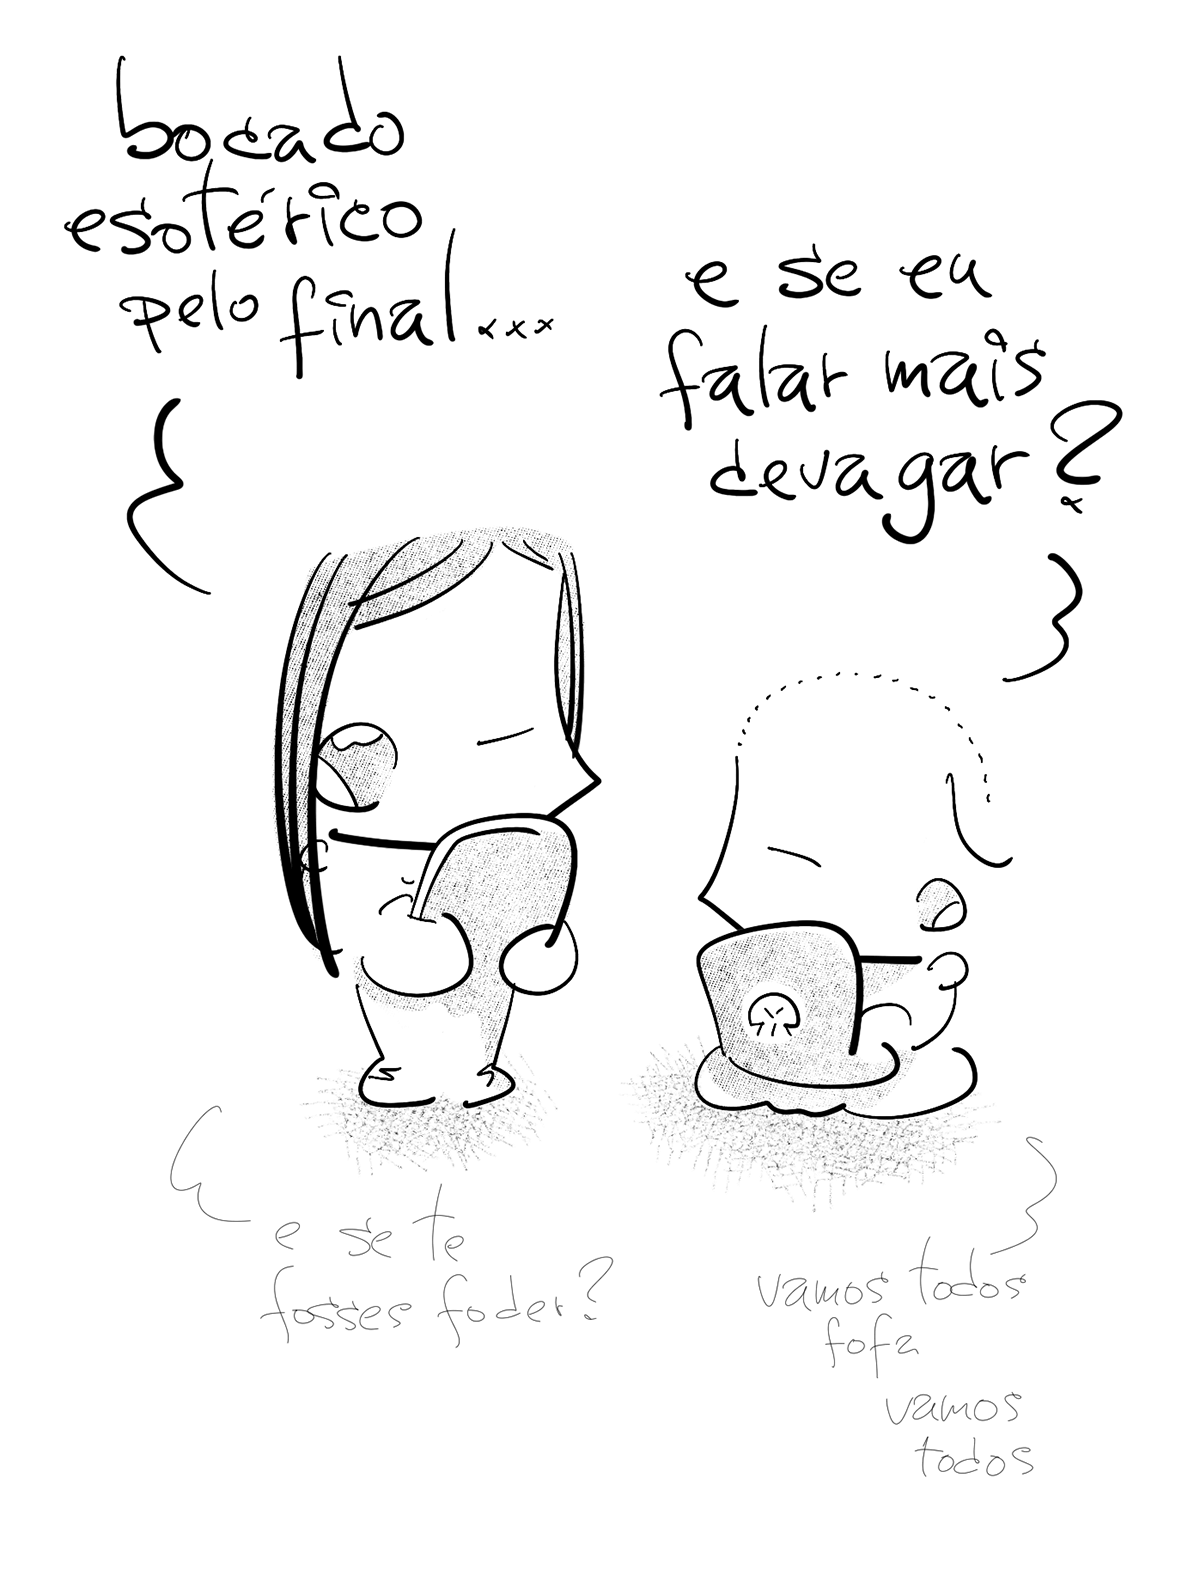 bocado
esotérico
pelo final...
e se eu
falar mais
devagar?
e se te
fosses foder?
vamos todos
fofa
vamos
todos